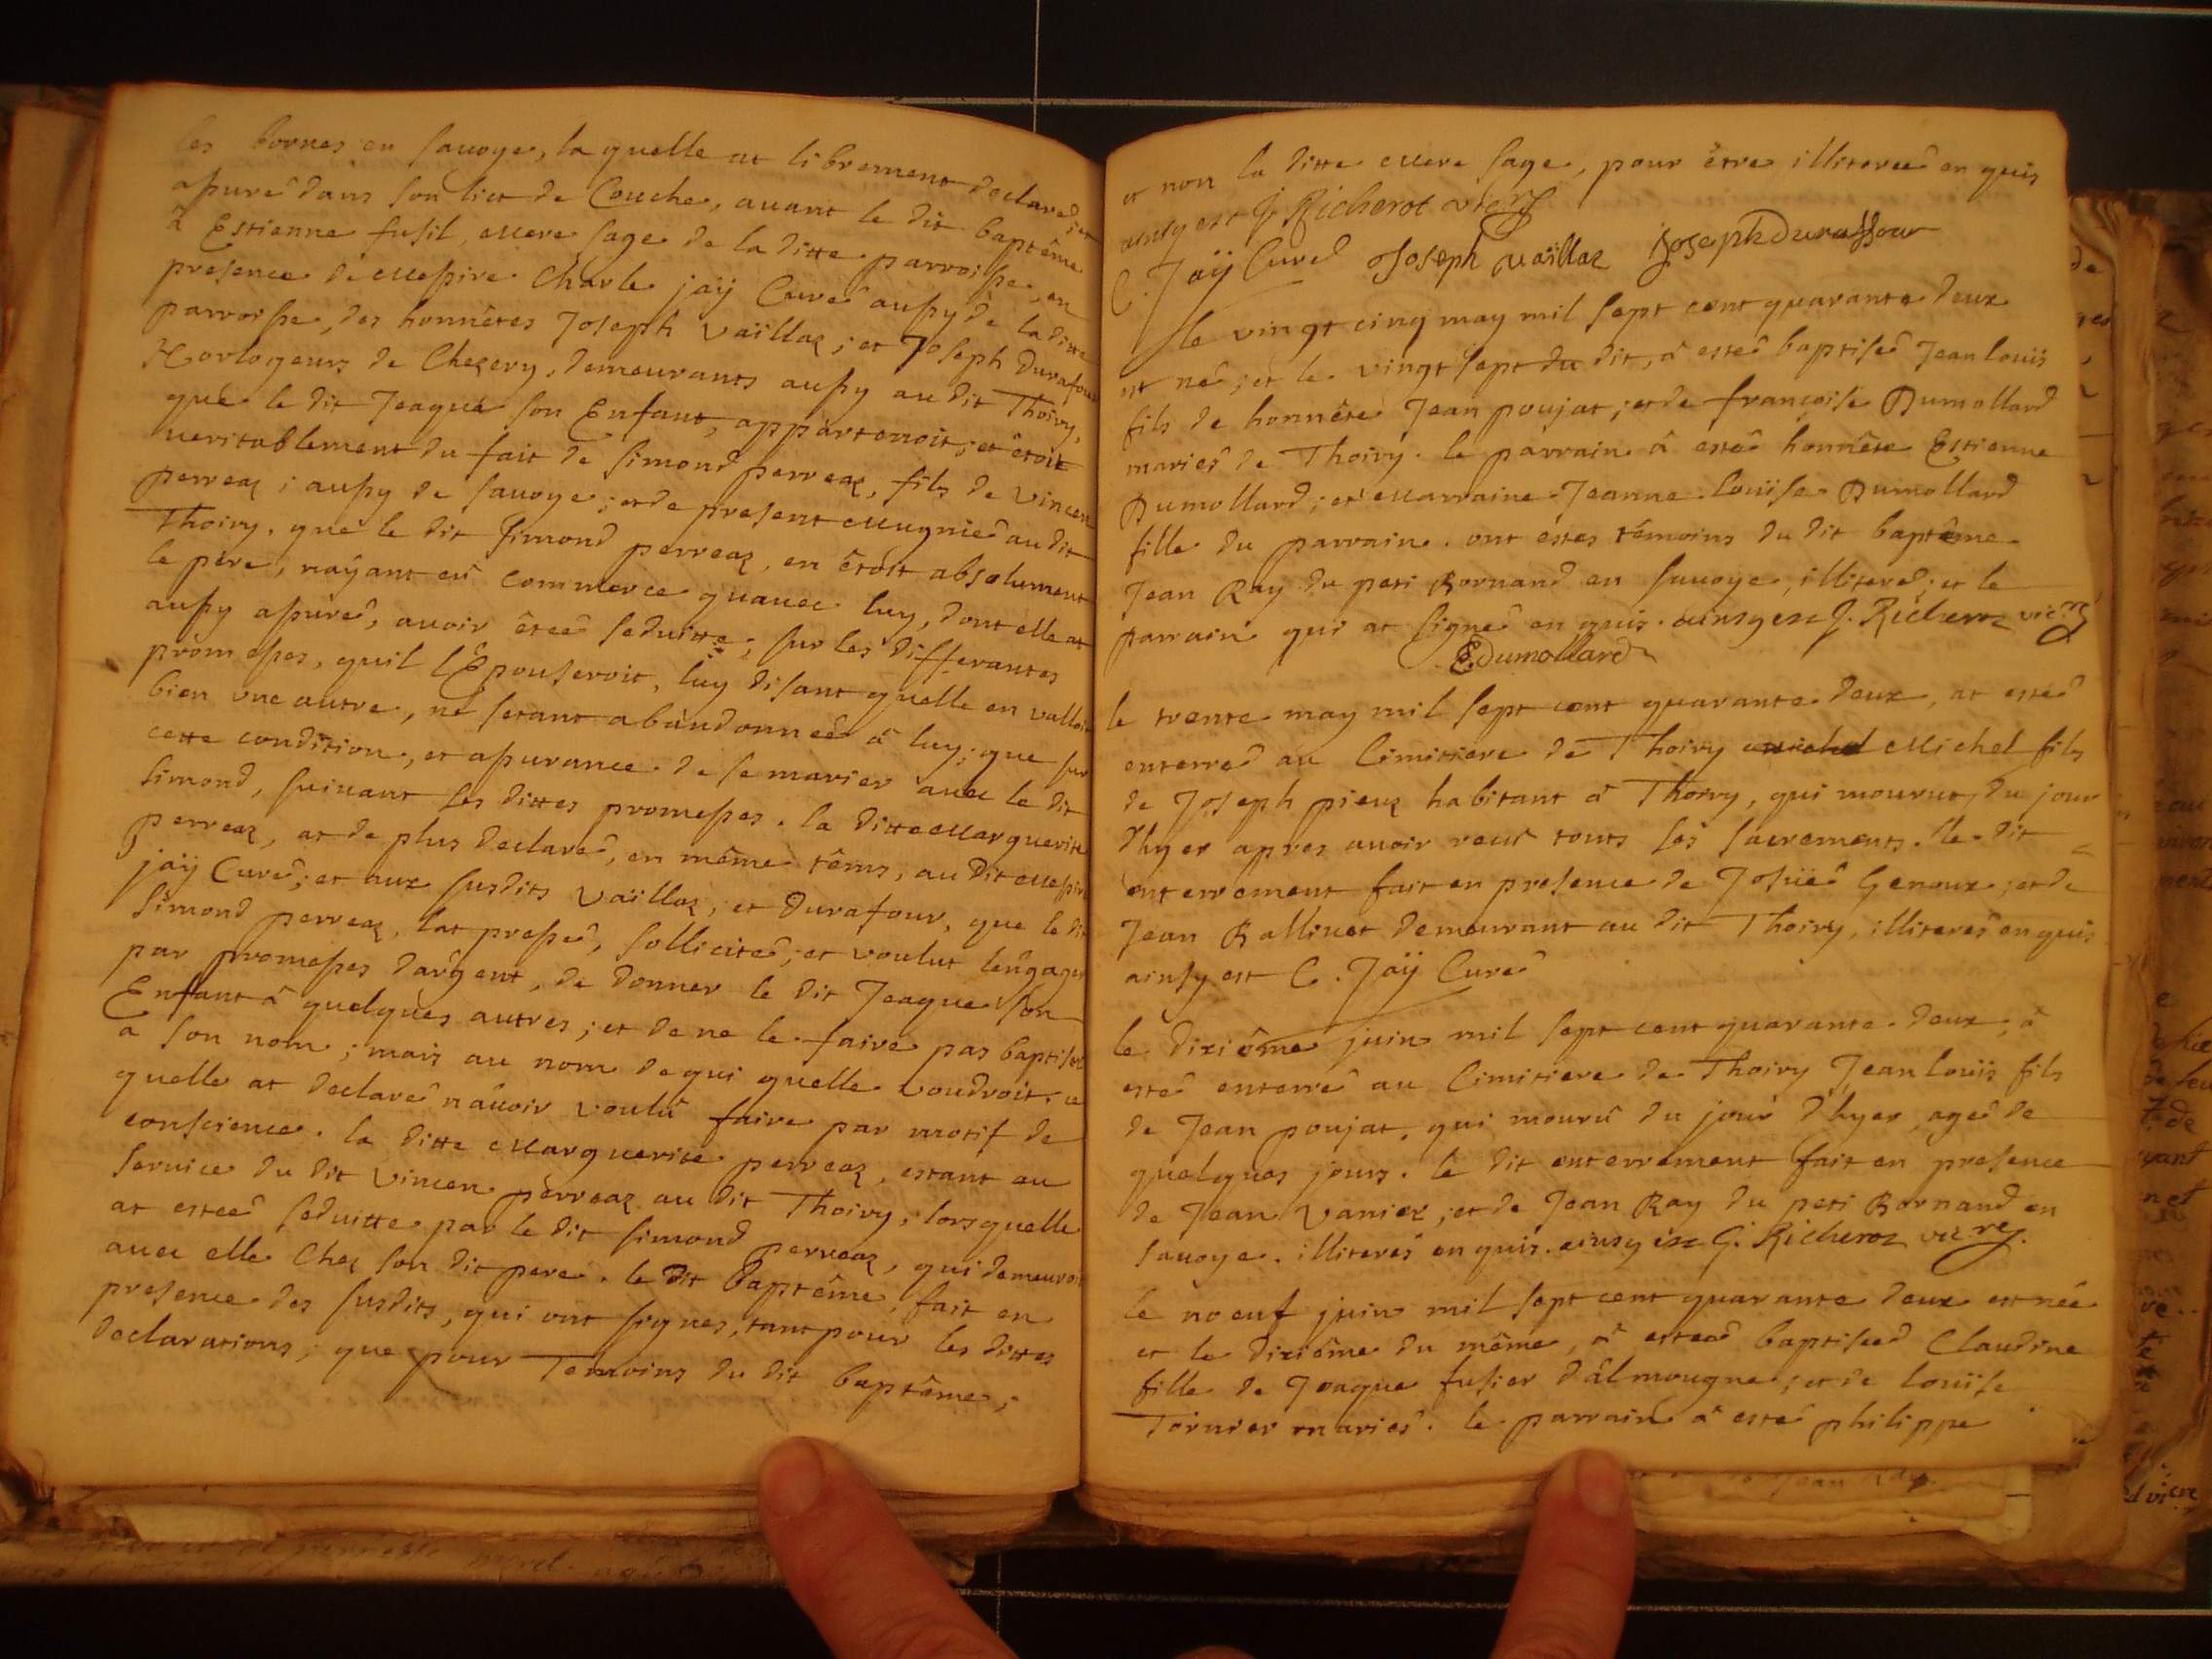 les bornes en sauoye, la quelle at librement declaré, et
assuré dans son lict de Couche, auant le dit baptême
à Estienne fusil, mere sage de la ditte parroisse, en
presence de messire Charle jaÿ Curé aussy de la ditte
parroisse, des honnêtes Joseph Vaïllaz ; et Joseph Durafour
Horlogeurs de Chezery, demeurants aussy au dit Thoiry,
que le dit Jeaque son Enfant, appartenoit ; et étoit
veritablement du fait de simond perreaz, fils de vincen
perreaz ; aussy de sauoye ; et de present mugnié au dit
Thoiry. que le dit simond perreaz, en étoit absolument
le père, nayant eu commerce quauec luy, dont elle at
aussy assuré, auoir étée seduitte ; sur les differantes
promesses, quil lEpouseroit, luy disant quelle en valloit
bien vne autre, ne setant abandonnée à luy ; que sur
cette condition, et assurance de se marier auec le dit
simond, suiuant les dittes promesses. la ditte marguerite
perreaz, at de plus declaré, en même têms, au dit messire
jaÿ Curé ; et aux susdits Vaïllaz, et Durafour, que le dit
simond perreaz, lat pressé, sollicité ; et voulut lengager
par promesses dargent, de donner le dit Jeaque son
Enfant à quelques autres ; et de ne le faire pas baptiser
a son nom ; mais au nom de qui quelle voudroit. ce
quelle at declaré nauoir voulu faire par motif de
conscience. la ditte marguerite perreaz, estant au
seruice du dit vincen perreaz au dit Thoiry, lorsquelle
at estée seduitte par le dit simond perreaz, qui demeuroit
auec elle Chez son dit pere. le Dit Baptême, fait en
presence des susdits, qui ont signes, tant pour les dittes
declarations ; que pour Temoins du dit baptême ;
et non la ditte mere sage, pour être illiterée en quis
ainsy est J. Richerot vicrs
C. Jaÿ Curé Joseph vaïllaz Joseph Duraffour
le vingt cinq may mil sept cent quarante deux
est né ; et le vingt sept du dit, à esté baptisé Jean louïs
fils de honnête Jean poujat ; et de françoise Dumollard
mariés de Thoiry. le parrain à esté honnête Estienne
Dumollard ; et marraine Jeanne louïse Dumollard
fille du parrain. ont éstes têmoins du dit baptême
Jean Ray du peti Bornand en sauoye, illiteré ; et le
parrain qui at signé en quis. ainsy est J. Richeroz vicrs
E Dumollard
le trente may mil sept cent quarante deux, at esté
enterré au Cimitiere de Thoiry michel Michel fils
de Joseph pieuz habitant à Thoiry, qui mourut du jour
dhyer apres auoir receu touts ses sacrements. le dit
enterrement fait en presence de Josüé Genoux ; et de
Jean Ballivet demeurant au dit Thoiry, illiterés en quis
ainsy est C. Jaÿ Curé
le dixiême juin mil sept cent quarante deux, à
esté enterré au Cimitiere de Thoiry Jean louïs fils
de Jean poujat, qui mourû du jour dhyer, agé de
quelques jours. le dit enterrement fait en presence
de Jean Vaniez ; et de Jean Ray du peti Bornand en
sauoye. illiterés en quis. ainsy est J. Richeroz vicrs.
le noeuf juin mil sept cent quarante deux est née
et le dixiême du même, à estée baptisée Claudine
fille de Jeaque fusier dalmougne ; et de louïse
Tornier mariés. le parrain à esté philippe